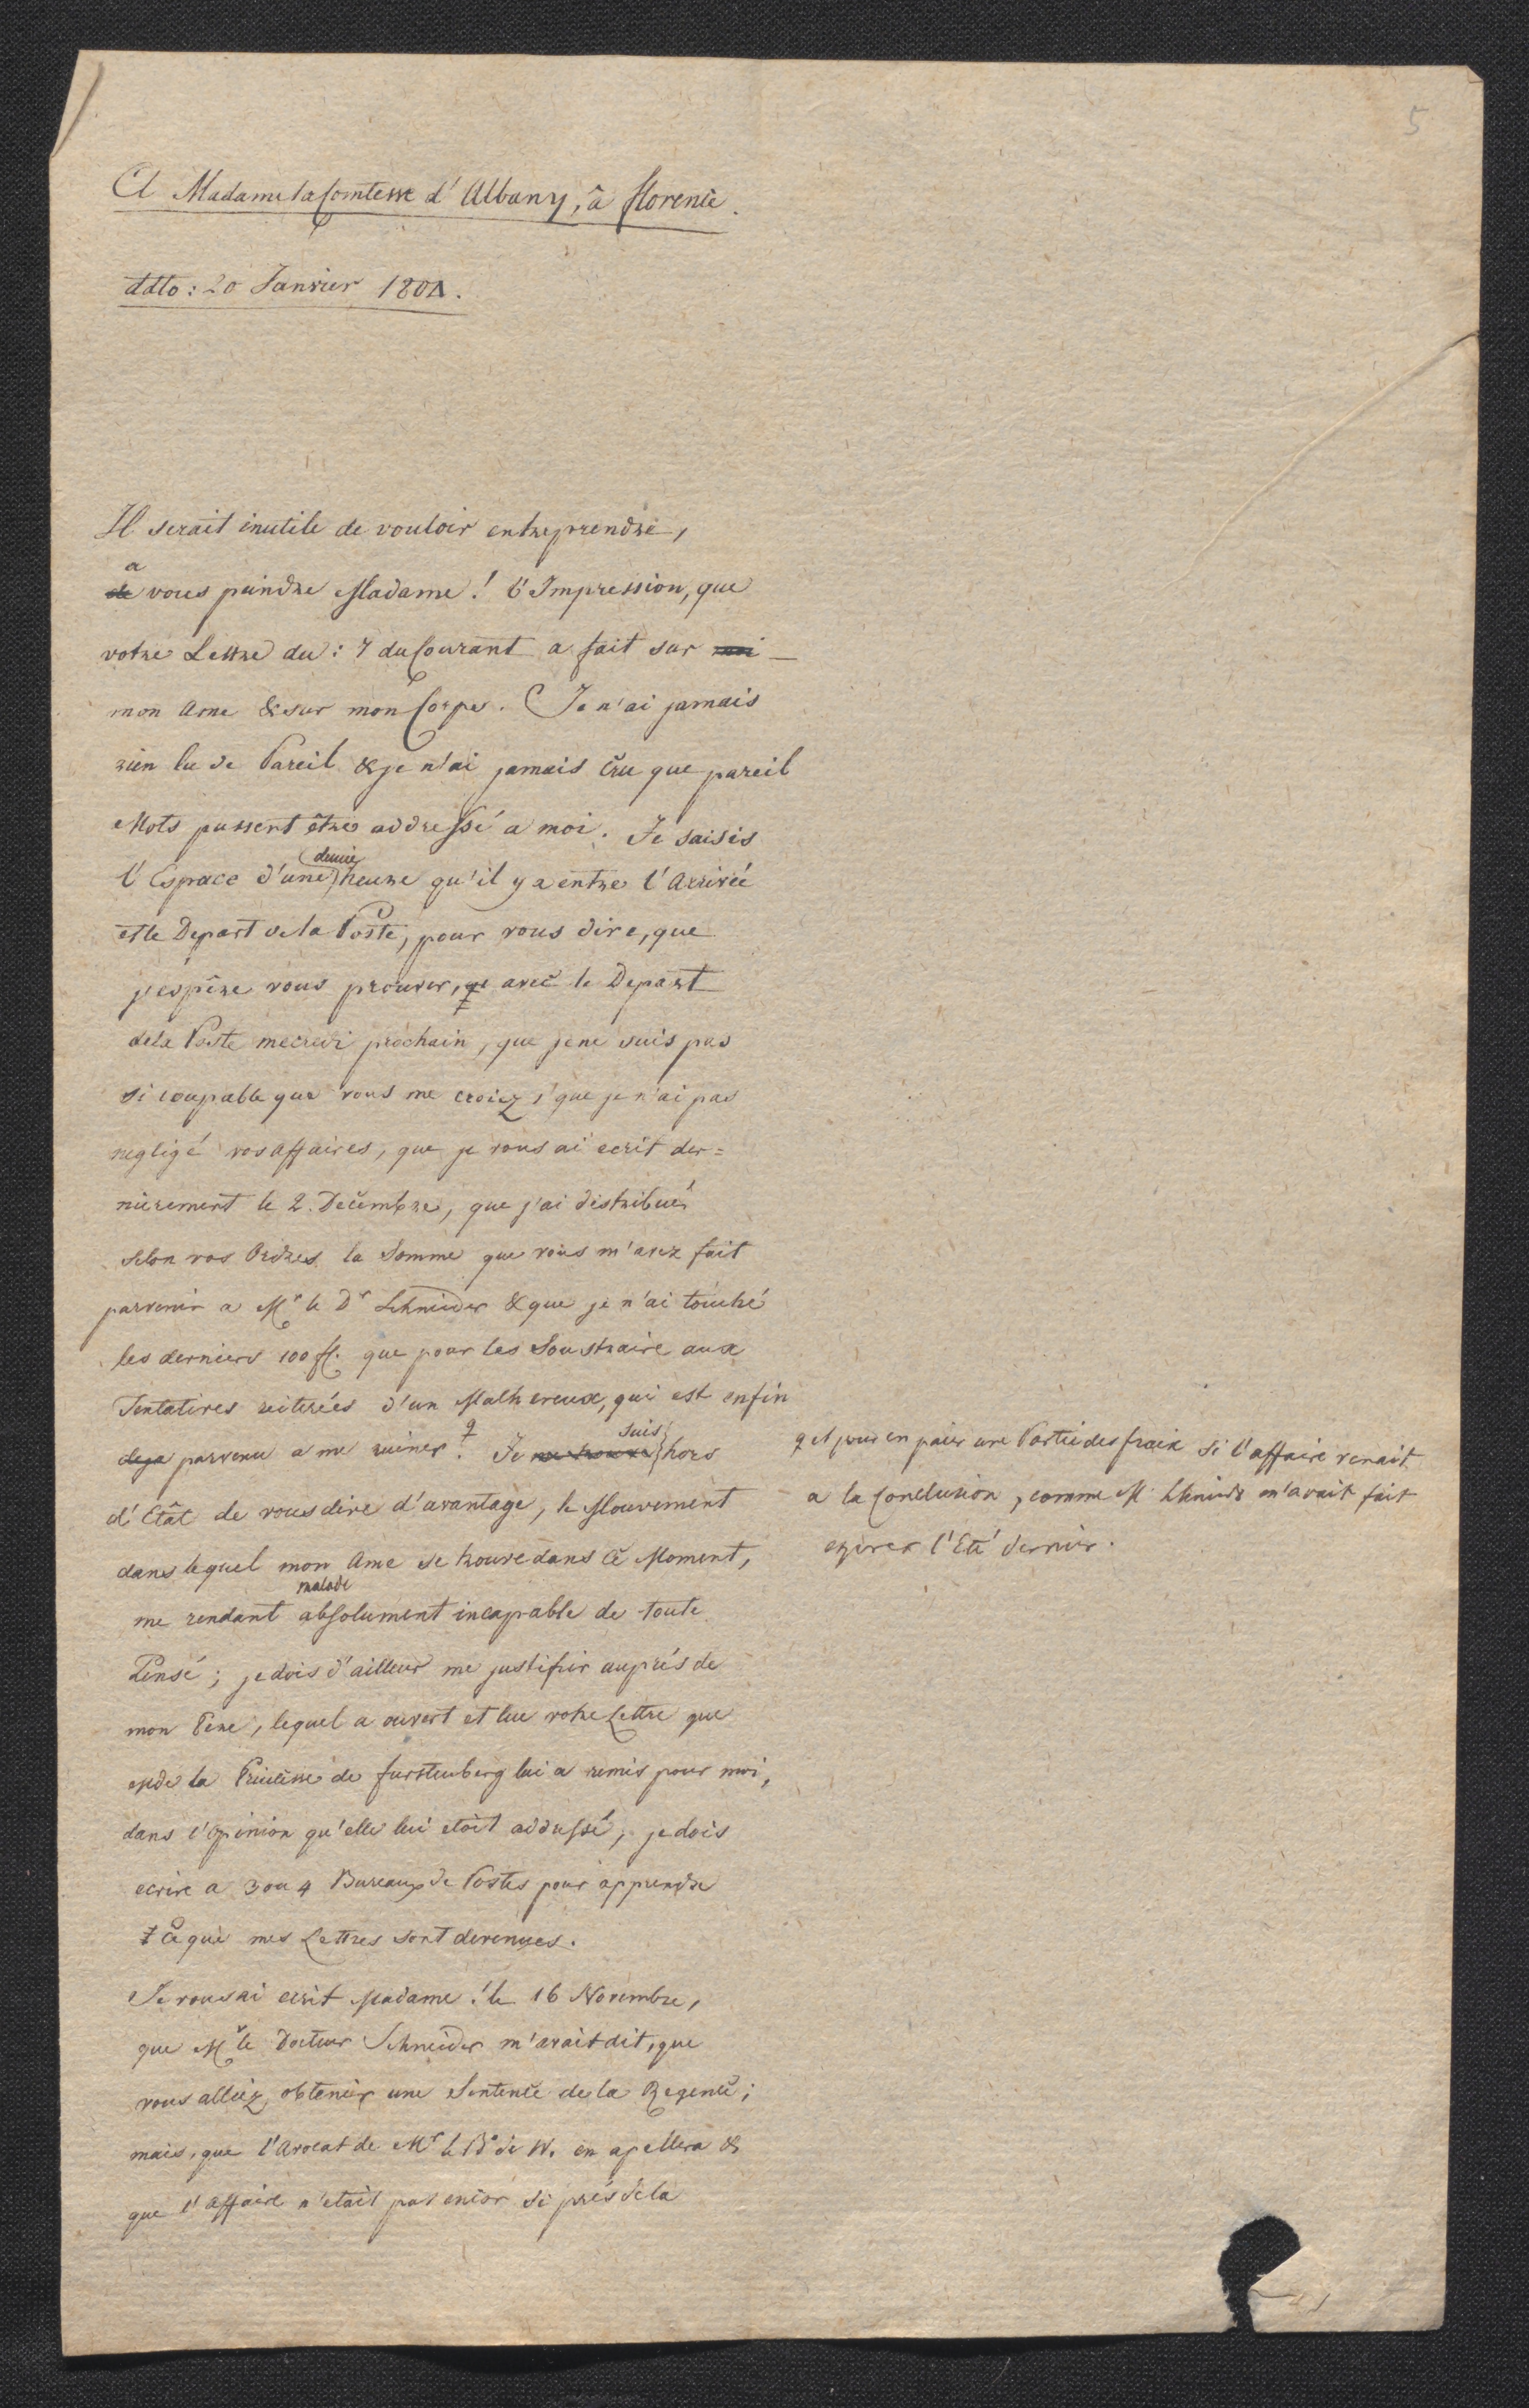 5
A Madame la Comtesse d'Albany, à florence.
ddto: 20 Janvier 1804.
Il serait inutile de vouloir entreprendre,
a
de vous peindre Madame! l'Impression, que
votre Lettre du: 7 du Courant a fait sur moi
mon Ame & sur mon Corps. Je n'ai jamais
rien lu de Pareil & je n'ai jamais crû que pareil
Mots pussent être addressé a moi. Je saisis
demie
l'Espace d'une heure qu'il y a entre l'Arrivée
et le Depart de la Poste, pour vous dire, que
j'espère vous prouver, qe avec le Depart
de la Poste mecredi prochain, que je ne suis pas
si coupable que vous me croiez, que je n'ai pas
negligé vos affaires, que je vous ai ecrit der=
nierement le 2. Decembre, que j'ai distribué
selon vos Ordres la Somme que vous m'avez fait
parvenir a Mr le Dr Schneider & que je n'ai touché
les derniers 100 fl. que pour les Soustraire aux
Tentatives reiterées d'un Malhereux, qui est enfin
suis
deja parvenu a me ruiner. Je me trouve hors
d'Etât de vous dire d'avantage, le Mouvement
dans lequel mon Ame se trouve dans ce Moment,
malade
me rendant absolument incapable de toute
Pensé; je dois d'ailleur me justifier auprés de
mon Pere, lequel a ouvert et lue votre Lettre que
la Princesse de furstenberg lui a remis pour moi,
dans l'Opinion qu'elle lui etoit addressé, je dois
ecrire a 3 ou 4 Bureaux de Postes pour apprendre
ce que mes Lettres sont devenues.
Je vous ai ecrit Madame! le 16 Novembre,
que Mr le Docteur Schneider m'avait dit, que
vous alliez obtenir une Sentence de la Regence;
mais, que l'Avocat de Mr le Bn de W. en apellera &
que l'affaire n'etait pas encor si prés de la
et pour en paier une Partie des fraix si l'affaire venait
a la Conclusion, comme M. Schneider m'avait fait
esperer l'Eté dernier.